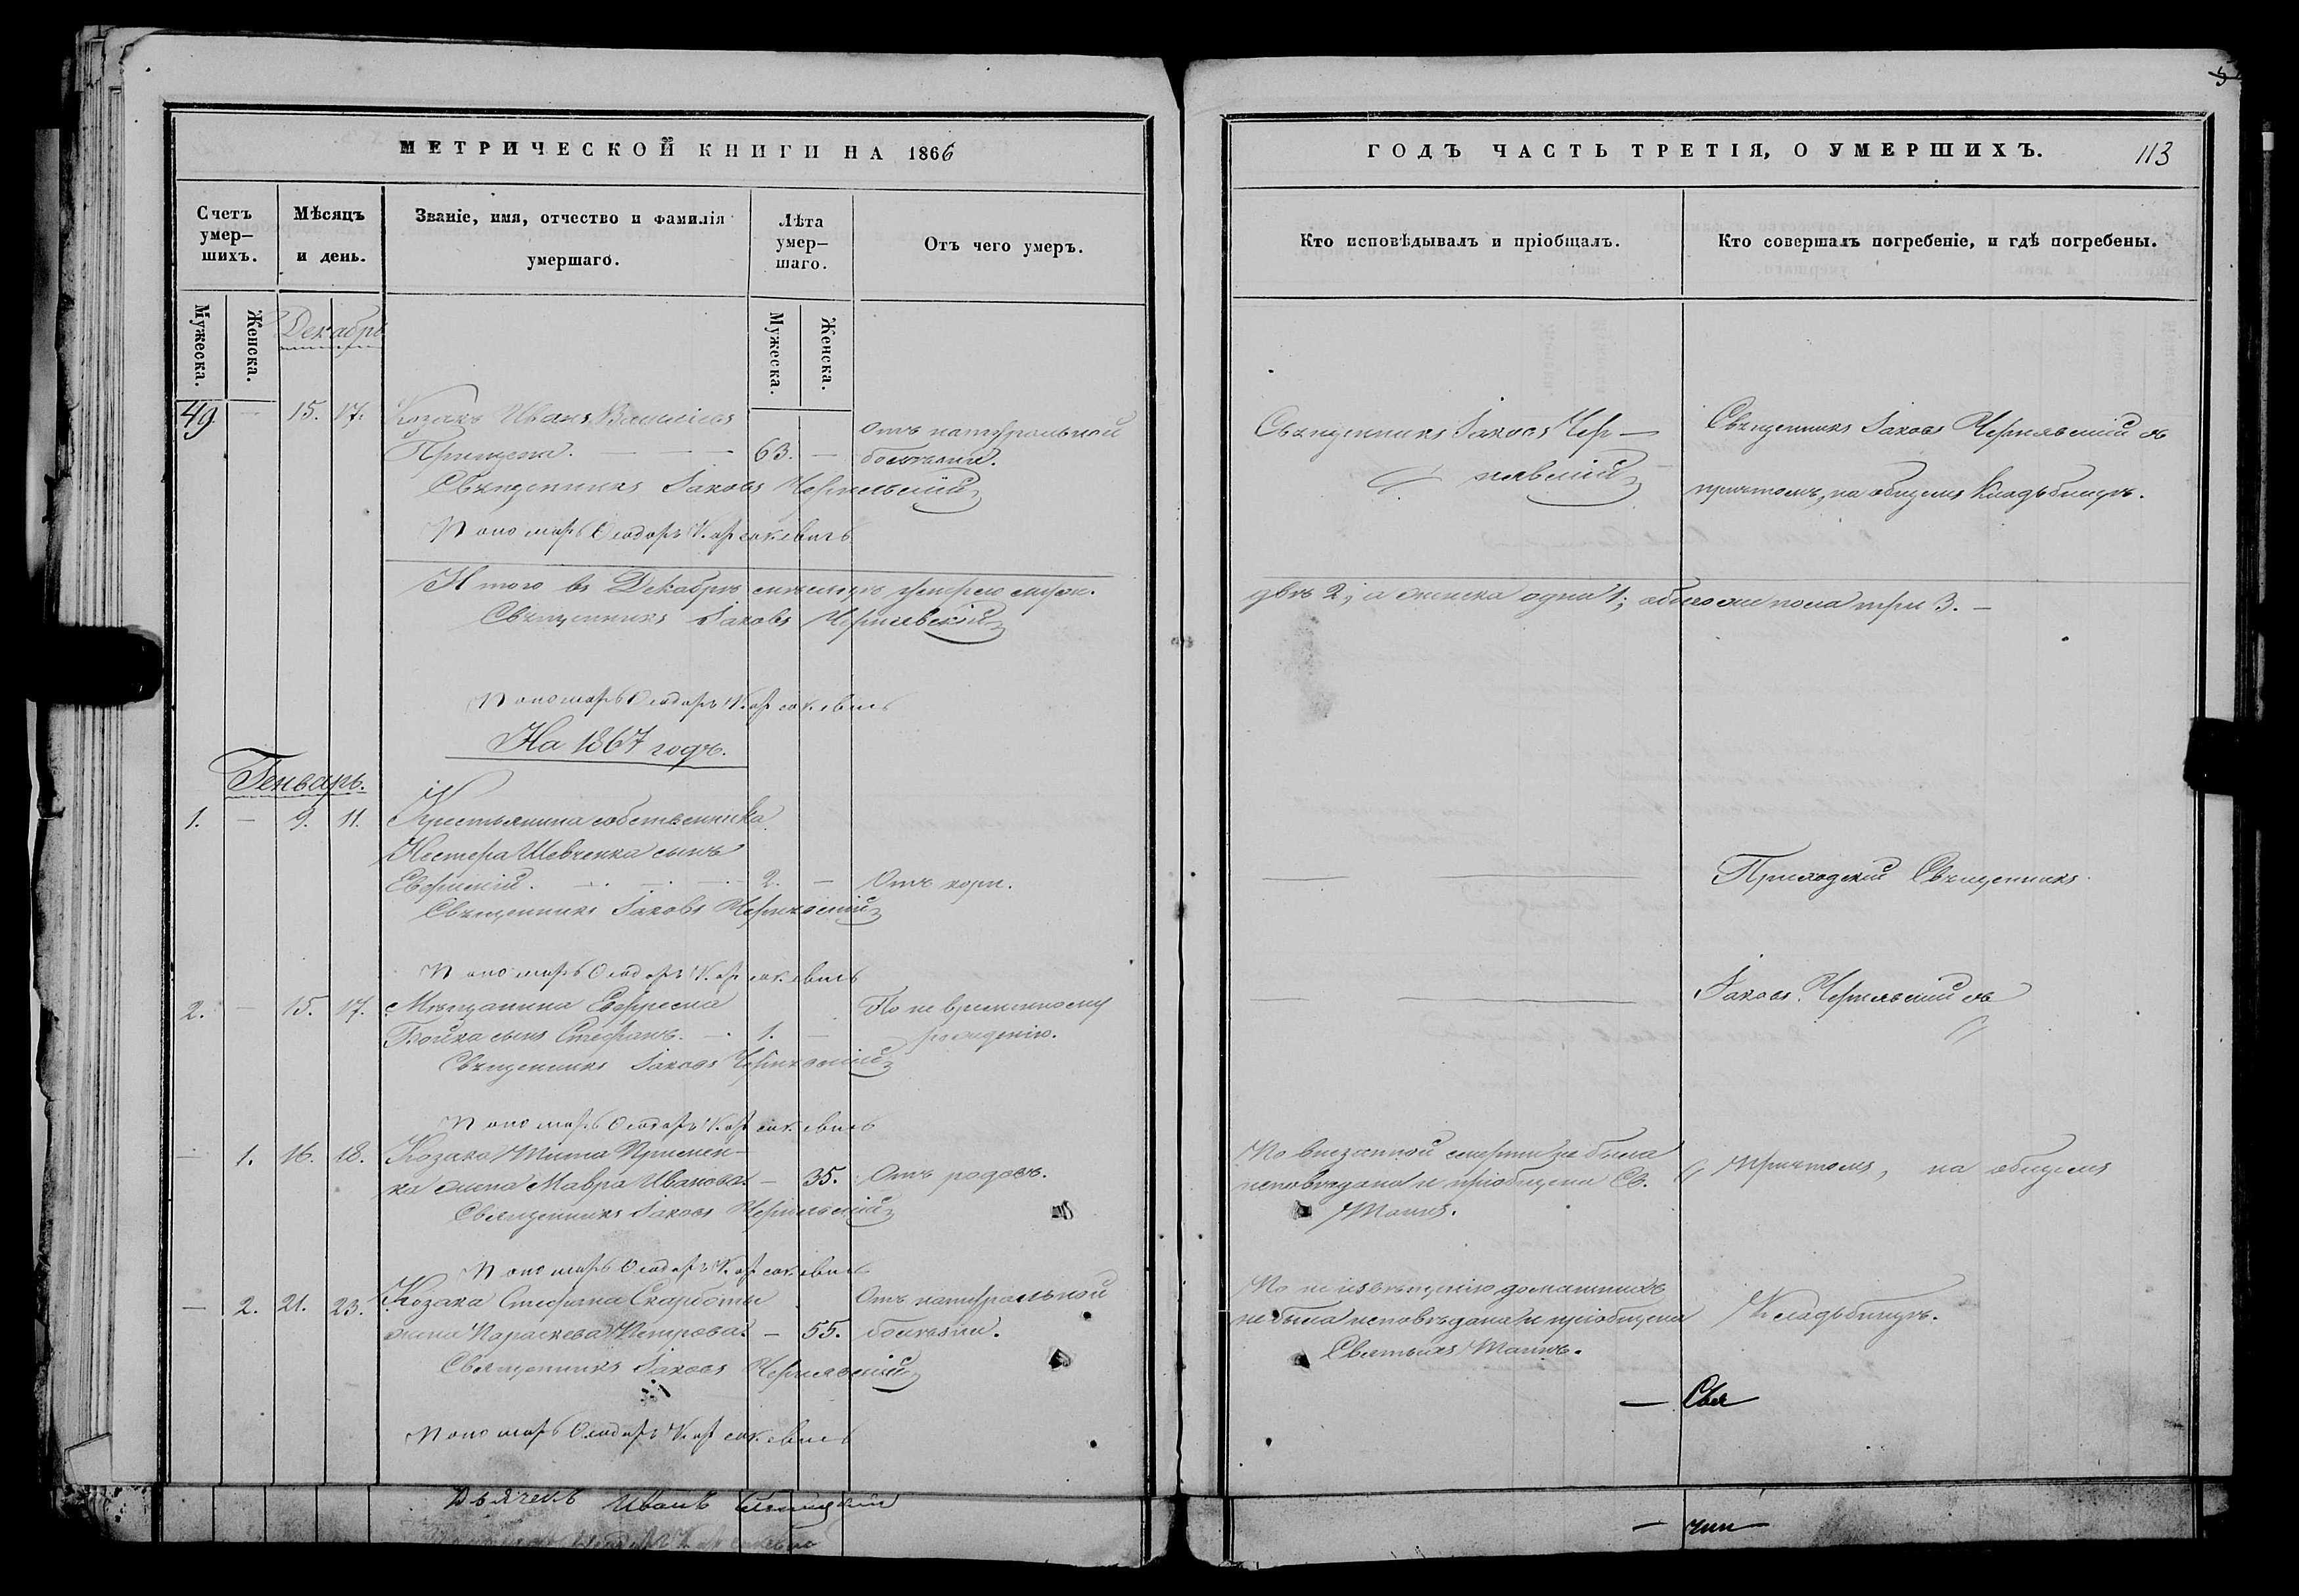 МЕТРИЧЕСКОЙ КНИГИ НА 1866
Счетъ умер-шихъ.
Мѣсяцъ и день.
Званіе, имя, отчество и фамилія умершаго.
Лѣта умер-шаго.
Отъ чего умеръ.
Мужеска.
Женска.
Декабрь
Мужеска.
Женска.
49. — 15. 17. Козакъ Иванъ Васильевъ
63. — Отъ натуральной
болѣзни.
Священникъ Іаковъ Чернявскій
Пономарь Ѳеодоръ
Итого въ Декабрѣ мѣсяцѣ умерло муж.
Священникъ Іаковъ Чернявскій
Пономарь Ѳеодоръ
На 1867 годъ.
Генварь.
1. — 9. 11. Крестьянина собственника
Нестера Шевченка сынъ
Евфимій. 2. — Отъ кори.
Священникъ Іаковъ Чернявскій
Пономарь Ѳеодоръ
2. — 15. 17. Мѣщанина Евфрема По не временному
Бойка сынъ Стефанъ. — 1. — рожденію.
Священникъ Іаковъ Чернявскій
Пономарь Ѳеодоръ
— 1. 16. 18. Козака Тита
жена Мавра Иванова. — 35. Отъ родовъ.
Священникъ Іаковъ Чернявскій
Пономарь Ѳеодоръ
— 2. 21. 23. Козака Стефана Скарботы Отъ натуральной
жена Параскева Петрова. — 55. болѣзни.
Священникъ Іаковъ Чернявскій
Пономарь Ѳеодоръ
Дьячекъ Иванъ
ГОДЪ ЧАСТЬ ТРЕТІЯ, О УМЕРШИХЪ. 113
Кто исповѣдывалъ и пріобщалъ.
Кто совершалъ погребеніе, и гдѣ погребены.
Священникъ Іаковъ Чер-
нявскій
Священникъ Іаковъ Чернявскій съ
причтомъ, на общемъ кладбищѣ.
двѣ 2, а женска одна 1; обоего же пола три 3. —
Приходскій Священникъ
Іаковъ Чернявскій съ
По внезапной смерти не была
исповѣдана и пріобщена Св.
Таинъ.
причтомъ, на общемъ
По не извѣщенію домашнихъ
не была исповѣдана и пріобщена
Святыхъ Таинъ.
Кладбищѣ.
— Свя
— щен —